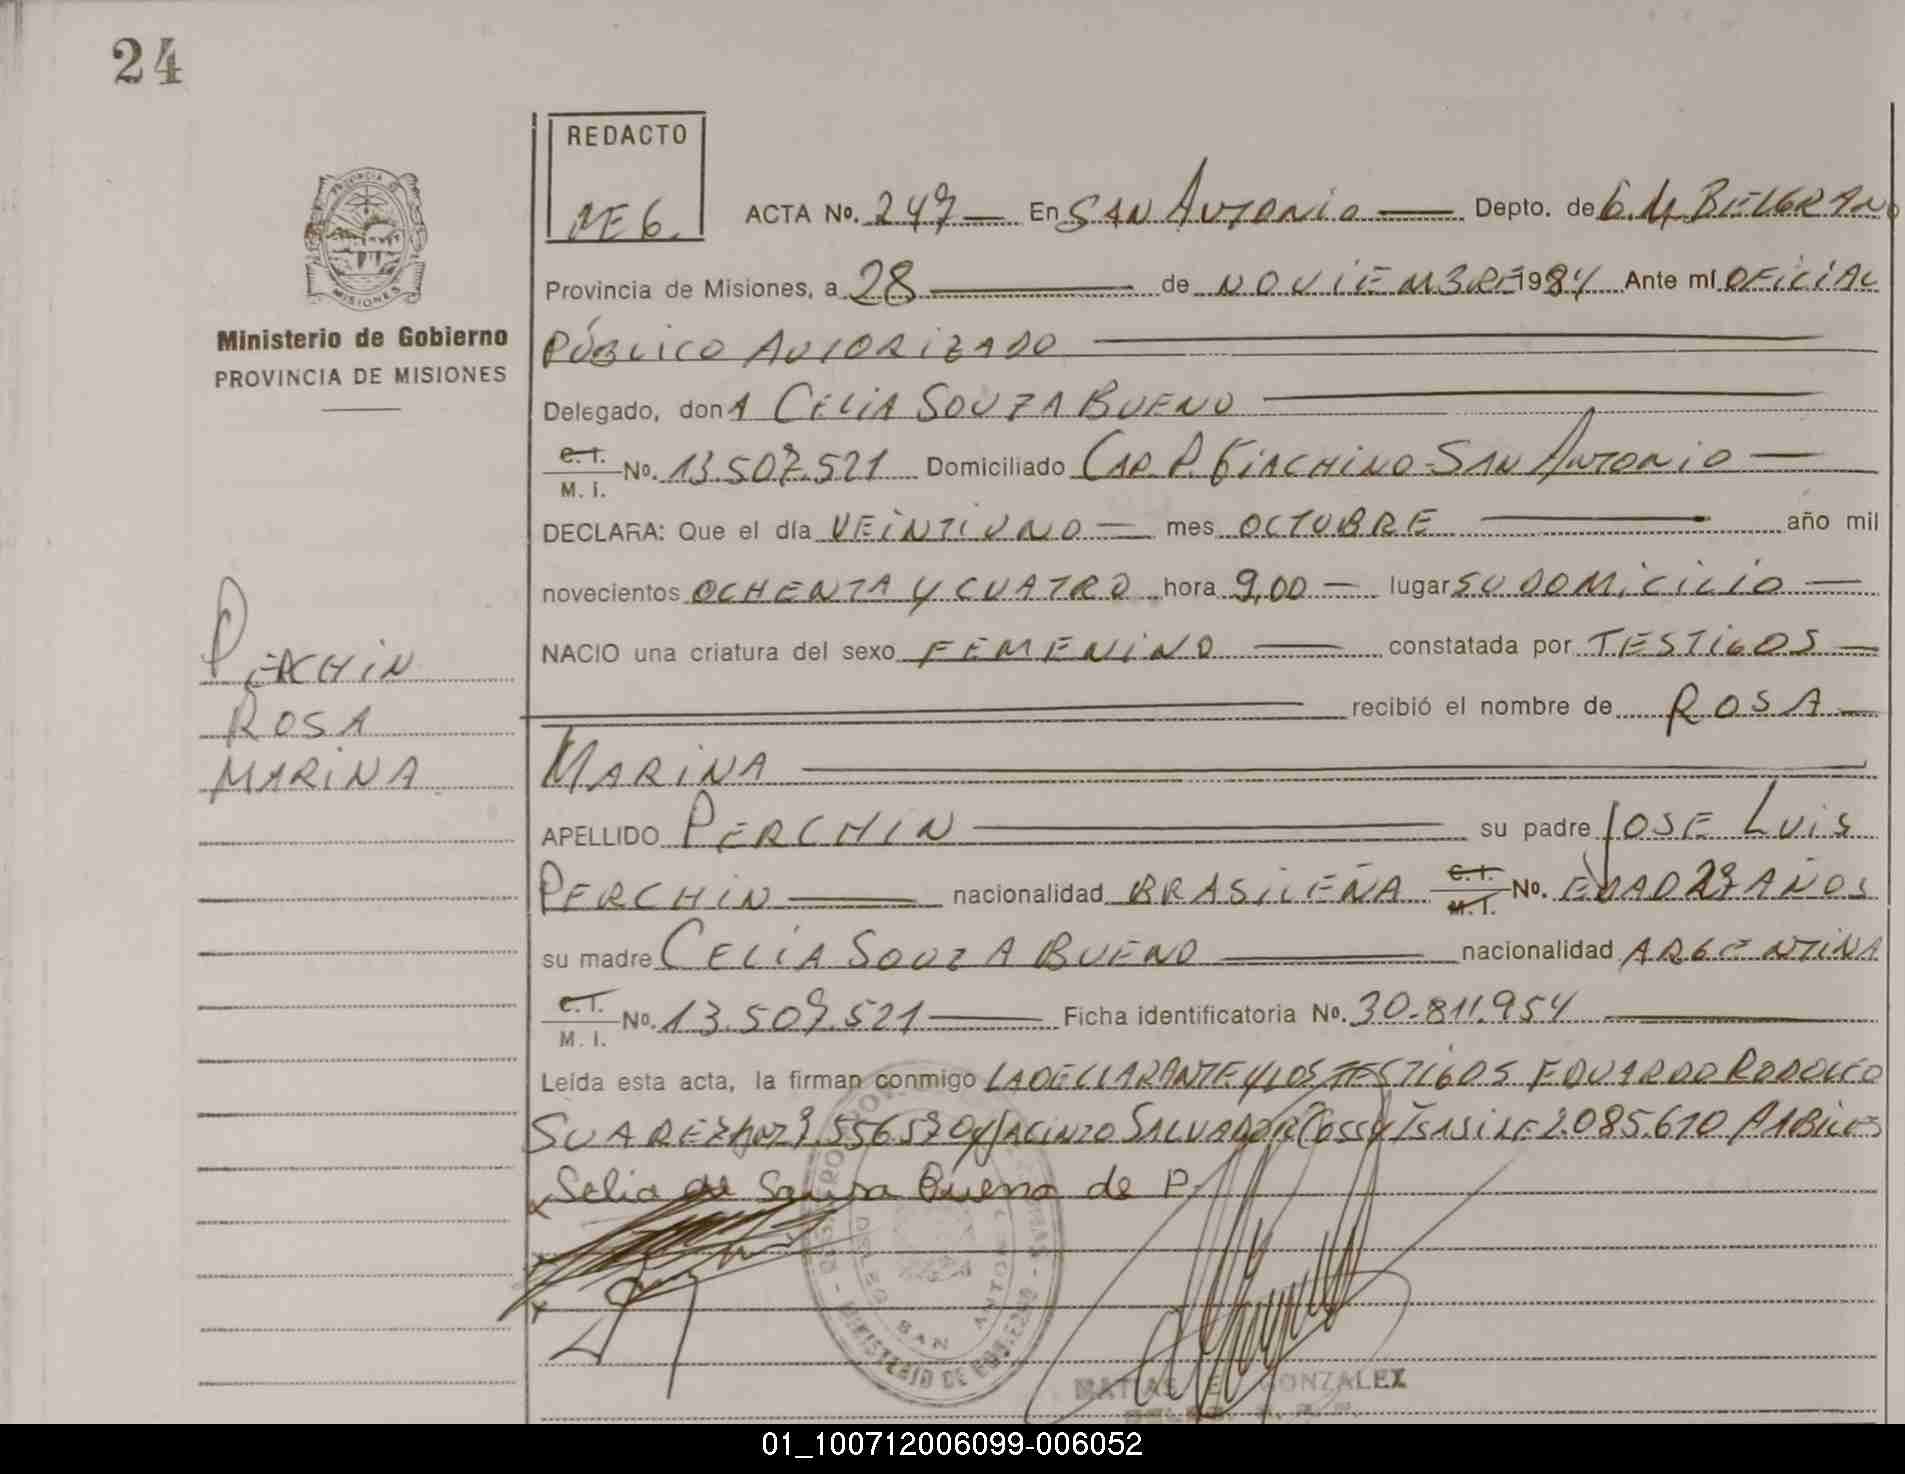 24
REDACTO
ME6.
ACTA No. 247 En SAN ANTONIO Depto. de G. M. BELGRANO
Provincia de Misiones, a 28 de NOVIEMBRE 1984 Ante mí OFICIAL
PÚBLICO AUTORIZADO
Ministerio de Gobierno
PROVINCIA DE MISIONES
Delegado, don A CELIA SOUZA BUENO
C. I.
M. I.
No. 13.507.521 Domiciliado CAP. P. GIACHINO - SAN ANTONIO
DECLARA: Que el día VEINTIUNO mes OCTUBRE año mil
novecientos OCHENTA Y CUATRO hora 9,00 lugar SU DOMICILIO
NACIO una criatura del sexo FEMENINO constatada por TESTIGOS
recibió el nombre de ROSA
MARINA
PERCHIN
ROSA
MARINA
APELLIDO PERCHIN su padre JOSE LUIS
PERCHIN nacionalidad BRASILEÑA C. I. M. I. No. EDAD 27 AÑOS
su madre CELIA SOUZA BUENO nacionalidad ARGENTINA
C. I.
M. I.
No. 13.507.521 Ficha identificatoria No. 30.811.954
Leída esta acta, la firman conmigo LA DECLARANTE Y LOS TESTIGOS EDUARDO RODOLFO
SUAREZ 7.556.570 Y JACINTO SALVADOR 2.085.610 AMBILES
x Selia de Sousa Bueno de P.
x
x
MINISTERIO DE GOBIERNO
SAN ANTONIO
MATIAS E. GONZALEZ
01_100712006099-006052